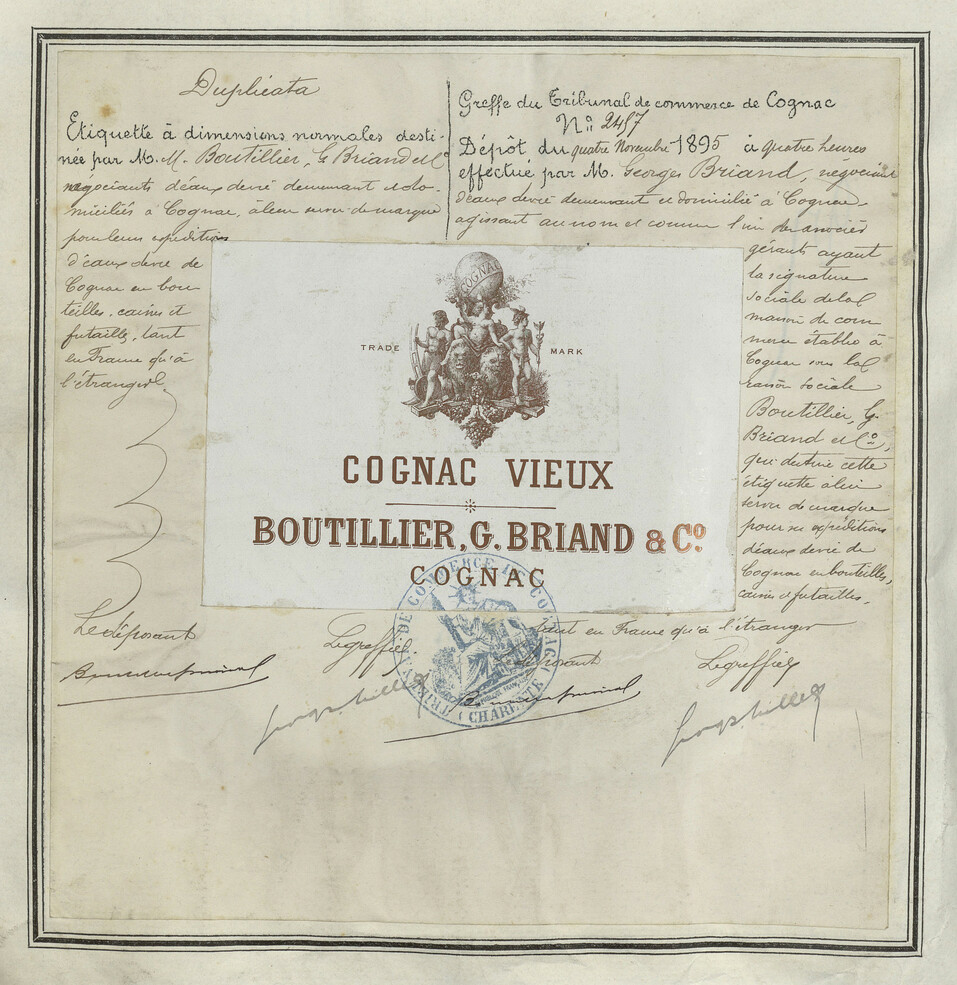 Duplicata
Etiquette à dimensions normales desti-
née par M. M. Boutillier, G. Briand et Cº
négociants d'eaux de vie demeurant et do-
miciliés à Cognac, à leur servir de marque
pour leurs expéditions
d'eaux de vie de
Cognac en bou
teilles, caisses et
futailles, tant
en France qu'à
l'étranger
Le déposant
Greffe du Tribunal de commerce de Cognac
Nº 2457
Dépôt du quatre Novembre 1895 à quatre heures
effectué par M. Georges Briand, négociant
d'eaux de vie demeurant et domicilié à Cognac
agissant au nom et comme l'un des associés
gérants ayant
la signature
sociale de la
maison de com
merce établie à
Cognac sous la
raison sociale
Boutillier, G.
Briand et Cº,
qui destine cette
étiquette à lui
servir de marque
pour ses expéditions
d'eaux de vie de
Cognac en bouteilles,
caisses et futailles,
tant en France qu'à l'étranger
Le greffier
déposant
Le greffier
COGNAC
TRADE MARK
COGNAC VIEUX
BOUTILLIER, G. BRIAND & Cº
COGNAC
TRIBUNAL DE COMMERCE DE COGNAC
(CHARENTE)